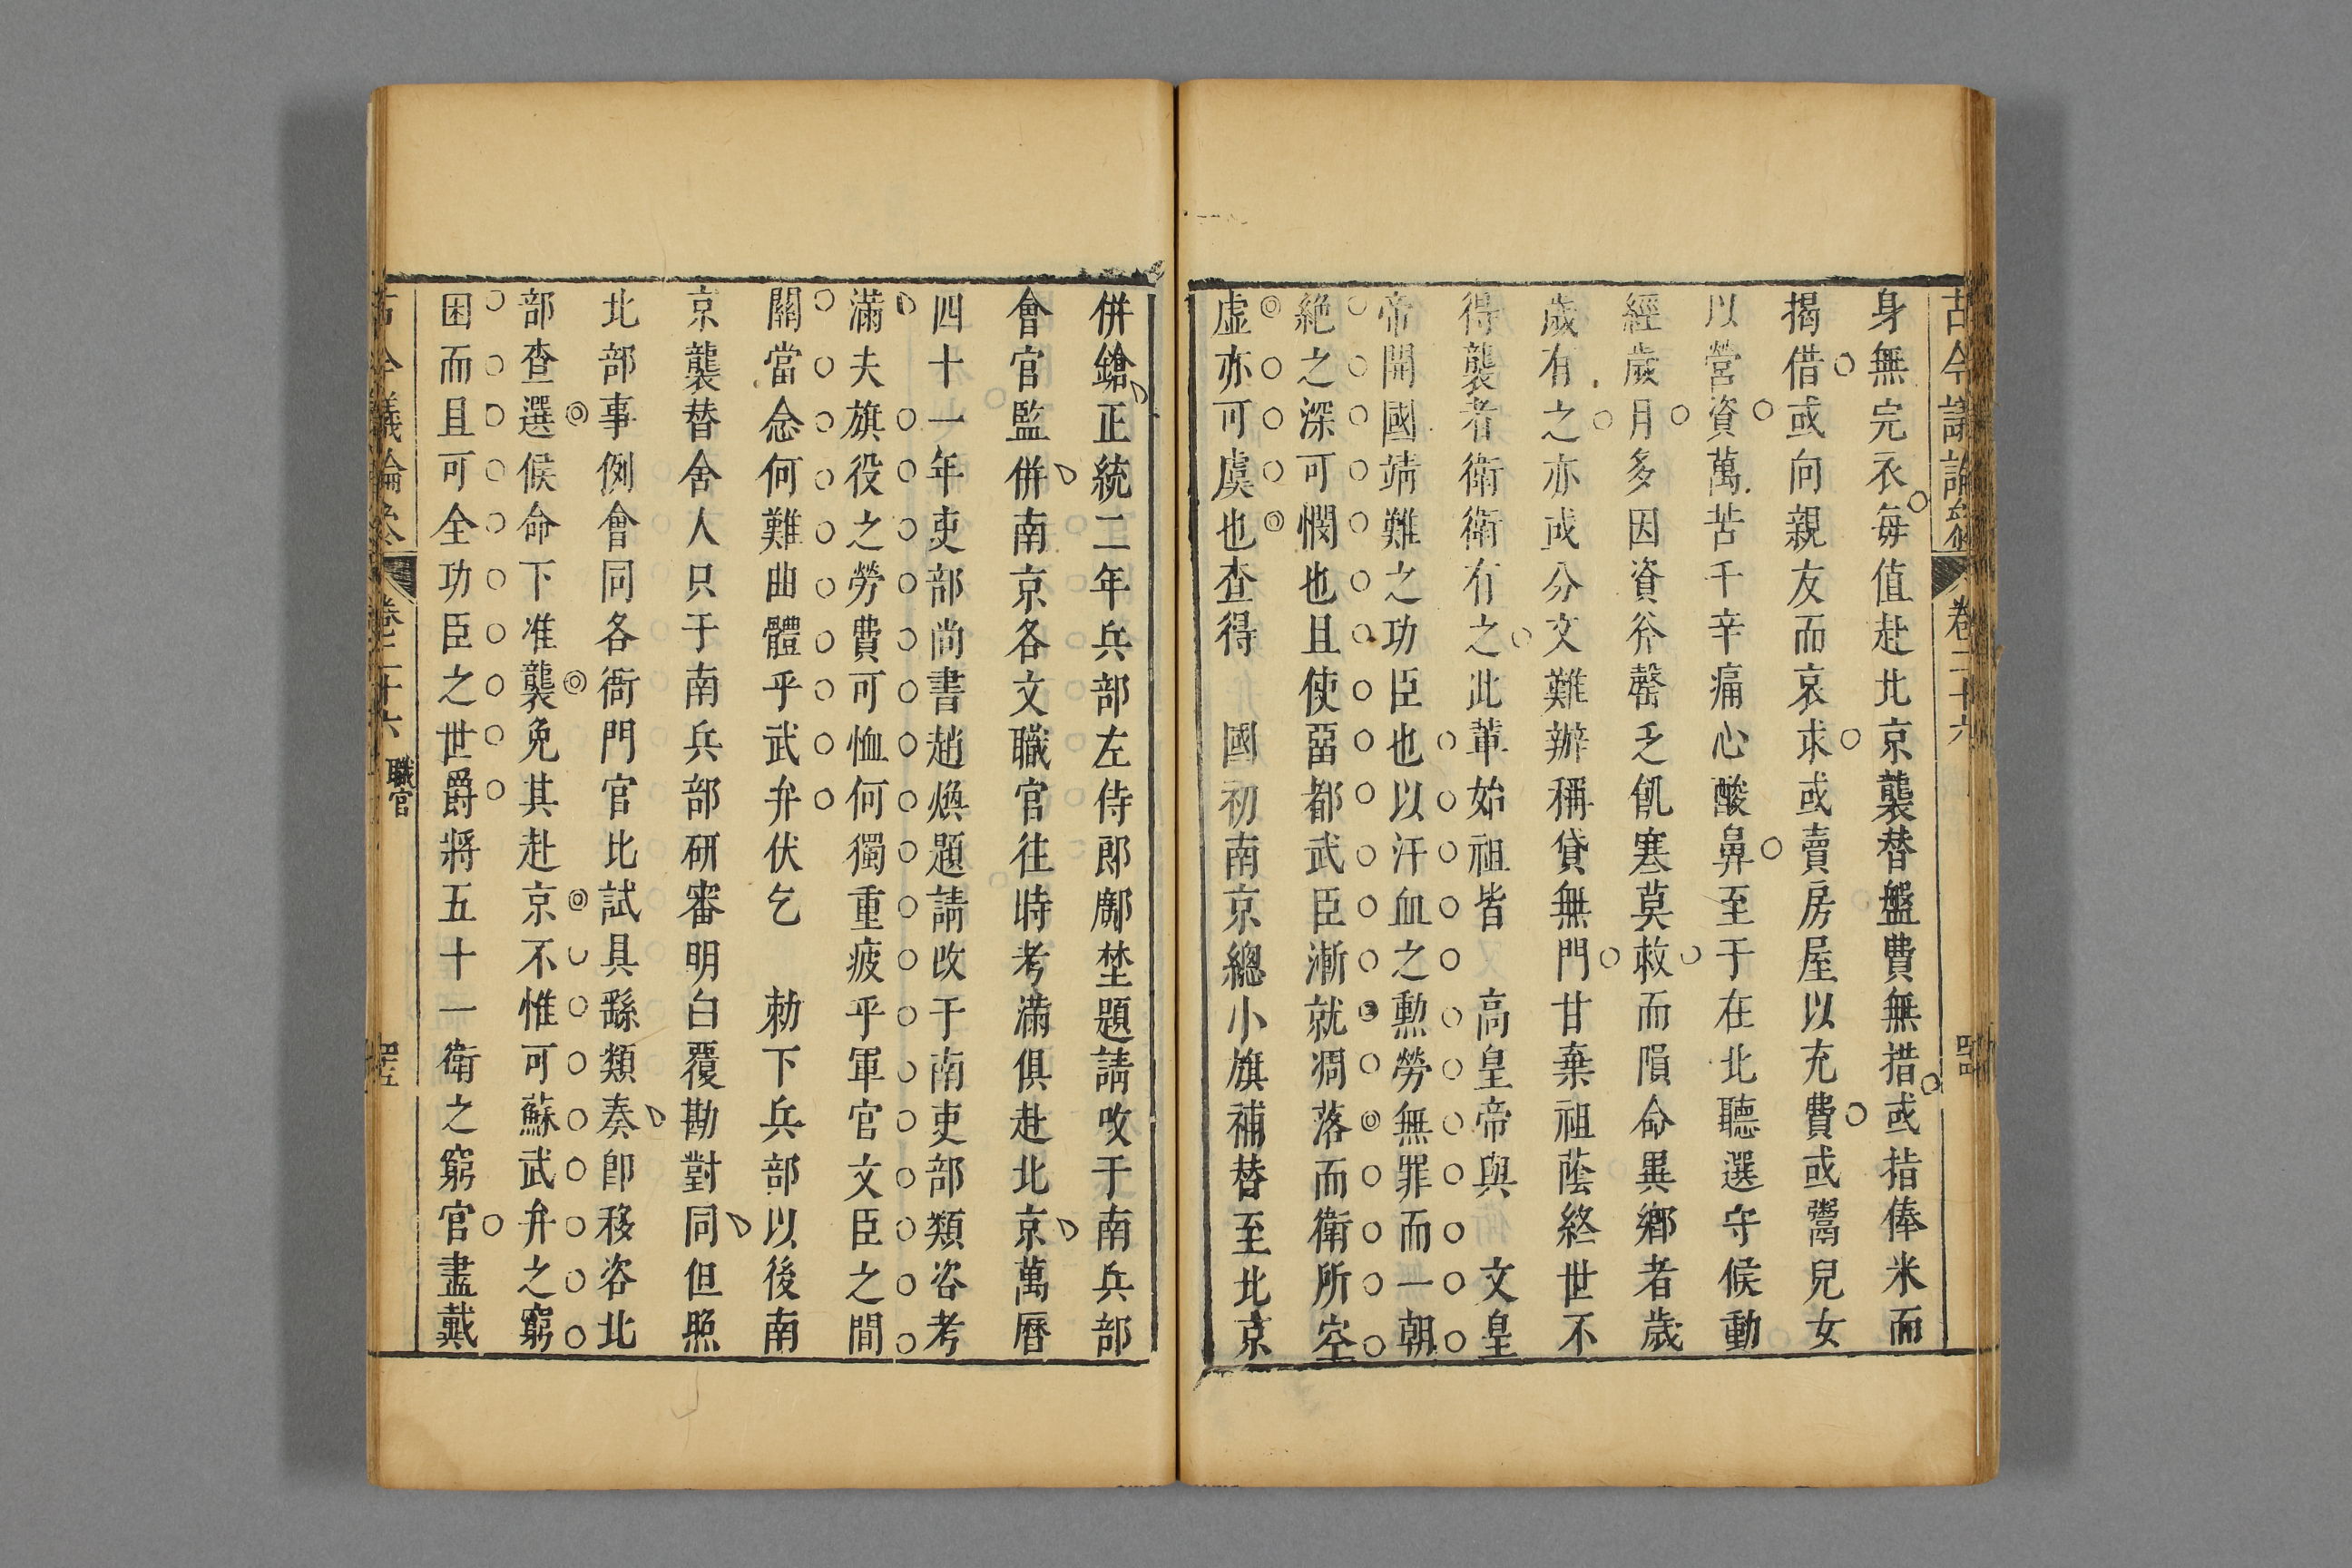 古今議論參
卷二十六
身無完衣每值赴北京襲替盤費無措或指俸米而
揭借或向親友而哀求或賣房屋以充費或鬻兒女
以營資萬苦千辛痛心酸鼻至于在北聽選守候動
經歲月多因資斧罄乏飢寒莫救而隕命異鄉者歲
歲有之亦或分文難辦稱貸無門甘棄祖蔭終世不
得襲者衛衛有之此輩始祖皆 高皇帝與 文皇
帝開國靖難之功臣也以汗血之勲勞無罪而一朝
絶之深可憫也且使畱都武臣漸就凋落而衛所空
虛亦可虞也查得 國初南京總小旗補替至北京
併鎗正統二年兵部左侍郎鄺埜題請改于南兵部
會官監併南京各文職官往時考滿俱赴北京萬曆
四十一年吏部尚書趙煥題請改于南吏部類咨考
滿夫旗役之勞費可恤何獨重疲乎軍官文臣之間
關當念何難曲體乎武弁伏乞 勑下兵部以後南
京襲替舍人只于南兵部研審明白覆勘對同但照
北部事例會同各衙門官比試具繇類奏卽移咨北
部查選候命下准襲免其赴京不惟可蘇武弁之窮
困而且可全功臣之世爵將五十一衛之窮官盡戴
古今議論參
卷二十六
職官